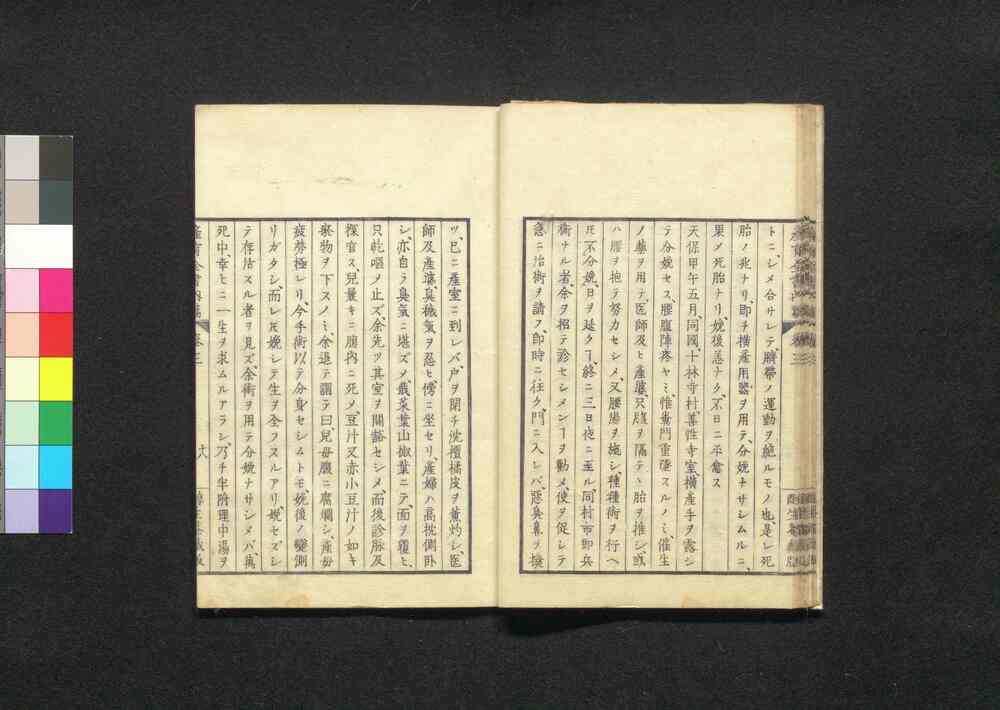 トニ、シメ合サレテ、臍帶ノ運動ヲ絶ルモノ也、是レ死
胎ノ兆ナリ、即チ横産用器ヲ用テ、分娩ナサシムルニ、
果ノ死胎ナリ、娩後恙ナク、不日ニ平愈ス
天保甲午五月、同國十林寺村、善性寺室、横産手ヲ露シ
テ分娩セス、腰腹陣疼ヤミ、惟肛門重墜スルノミ、催生
ノ藥ヲ用テ、医師及ヒ産婆、只腹ヲ隔テヽ胎ヲ推シ、或
ハ腰ヲ抱テ努力セシメ、又腰湯ヲ施シ、種種術ヲ行ヘ
𪜈、不分娩、日ヲ延クヿ、終ニ三日夜ニ至ル、同村市郎兵
衛ナル者、余ヲ招テ診セシメンヿヲ勸メ、使ヲ促シテ
急ニ治術ヲ請フ、即時ニ往ク、門ニ入レバ、惡臭鼻ヲ撲
ツ、已ニ産室ニ到レバ、戸ヲ閉チ沈檀橘皮ヲ薫灼シ、医
師及産婆、臭穢氣ヲ忍ヒ傍ニ坐セリ、産婦ハ高枕側卧
シ、亦自ラ臭氣ニ堪ズ〆、截菜葉山椒葉ニテ、面ヲ覆ヒ、
只乾嘔ノ止ズ、余先ツ其室ヲ開豁セシメ、而後診脉及
探宮ス、兒曩キニ腹内ニ死〆、豆汁又赤小豆汁ノ如キ
瘀物ヲ下スノミ、余退テ謂テ曰兒毋腹ニ腐爛シ、産毋
疲勞極レリ、今手術以テ分身セシムトモ、娩後ノ變測
リガタシ、而レ𪜈娩シテ生ヲ全フスルアリ、娩セズシ
テ存活スル者ヲ見ズ、余術ヲ用テ分娩ナサシメバ、萬
死中、幸ヒニ一生ヲ求ムルアラシ、乃チ半附理中湯ヲ
産育全書内篇 卷三